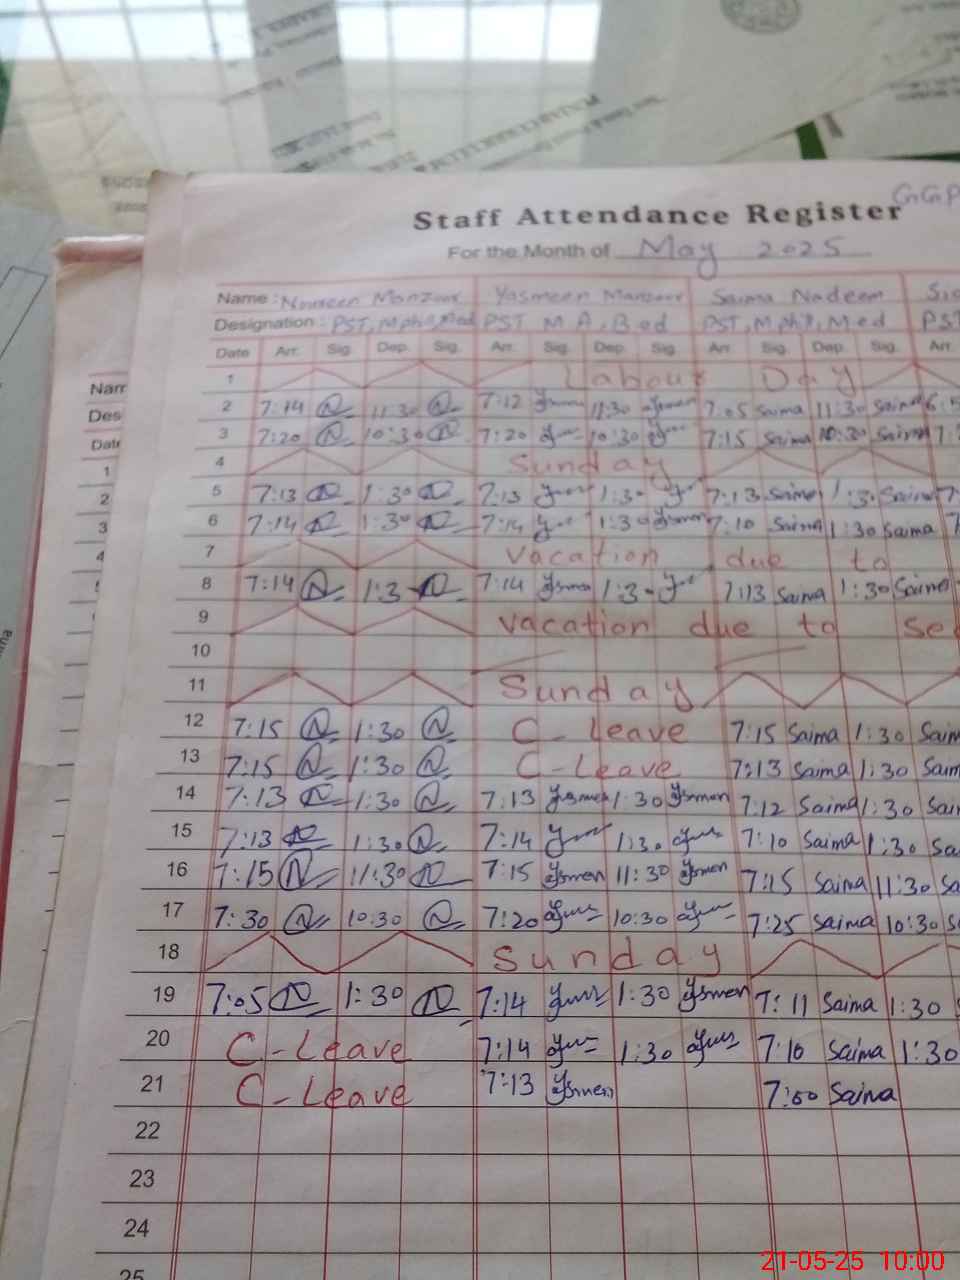 GGP
Staff Attendance Register
For the Month of May 2025
Name : Noureen Manzoor Yasmeen Manzoor Saima Nadeem
Designation : PST, Mphil, Med PST M A, B.ed PST, Mphil, M.ed PST
Date Arr. Sig. Dep. Sig. Arr. Sig. Dep. Sig. Arr. Sig. Dep. Sig. Arr.
1 Labour Day
2 7:14 N 11:30 N 7:12 11:30 7:05 Saima 11:30 Saima
3 7:20 N 10:30 N 7:20 10:30 7:15 Saima 10:30 Saima
4 Sunday
5 7:13 N 1:30 N 7:13 1:30 7:13 Saima 1:30 Saima
6 7:14 N 1:30 N 7:14 1:30 7:10 Saima 1:30 Saima
7 vacation due to
8 7:14 N 1:30 N 7:14 1:30 7:13 Saima 1:30 Saima
9 vacation due to
10
11 Sunday
12 7:15 N 1:30 N C-Leave 7:15 Saima 1:30 Saim
13 7:15 N 1:30 N C-Leave 7:13 Saima 1:30 Saim
14 7:13 N 1:30 N 7:13 Ysmen 1:30 Ysmen 7:12 Saima 1:30 Sai
15 7:13 N 1:30 N 7:14 1:30 7:10 Saima 1:30 Sa
16 7:15 N 11:30 N 7:15 Ysmen 11:30 Ysmen 7:15 Saima 11:30 Sa
17 7:30 N 10:30 N 7:20 10:30 7:25 Saima 10:30 S
18 Sunday
19 7:05 N 1:30 N 7:14 1:30 Ysmen 7:11 Saima 1:30
20 C-Leave 7:14 1:30 7:10 Saima 1:30
21 C-Leave 7:13 Ysmen 7:00 Saima
22
23
24
25
Nam
Des
Date
1
2
3
4
21-05-25 10:00